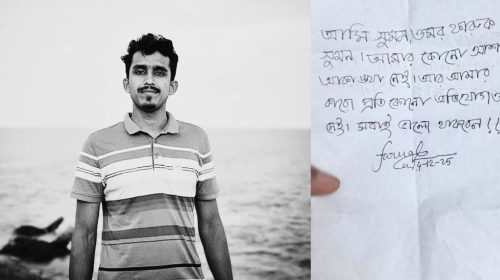 আমি সুমন। ওমর ফারুক
সুমন। আমার কোনো আশা
আকাঙ্খা নেই। আর আমার
কারো প্রতি কোনো অভিযোগও
নেই। সবাই ভালো থাকবেন!!